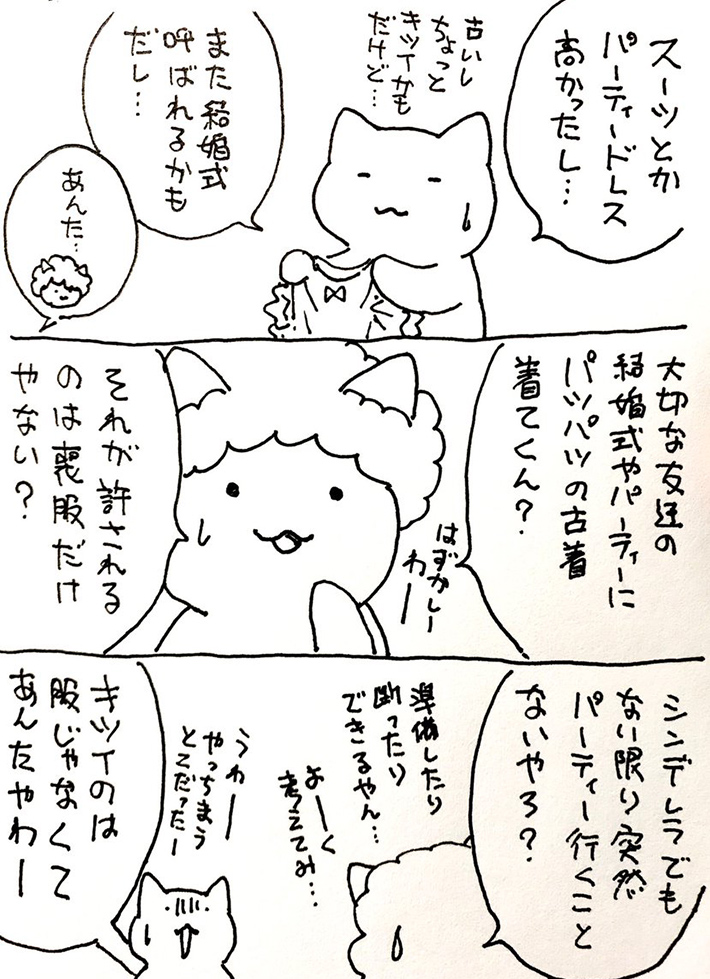 スーツとか
パーティードレス
高かったし…
古いし
ちょっと
キツイかも
だけど…
また結婚式
呼ばれるかも
だし…
あんた…
大切な友達の
結婚式やパーティーに
パツパツの古着
着てくん？
はずかしー
わー
それが許される
のは喪服だけ
やない？
シンデレラでも
ない限り突然
パーティー行くこと
ないやろ？
準備したり
断ったり
できるやん…
よーく
考えてみ…
うわー
やっちまう
とこだったー
キツイのは
服じゃなくて
あんたやわー